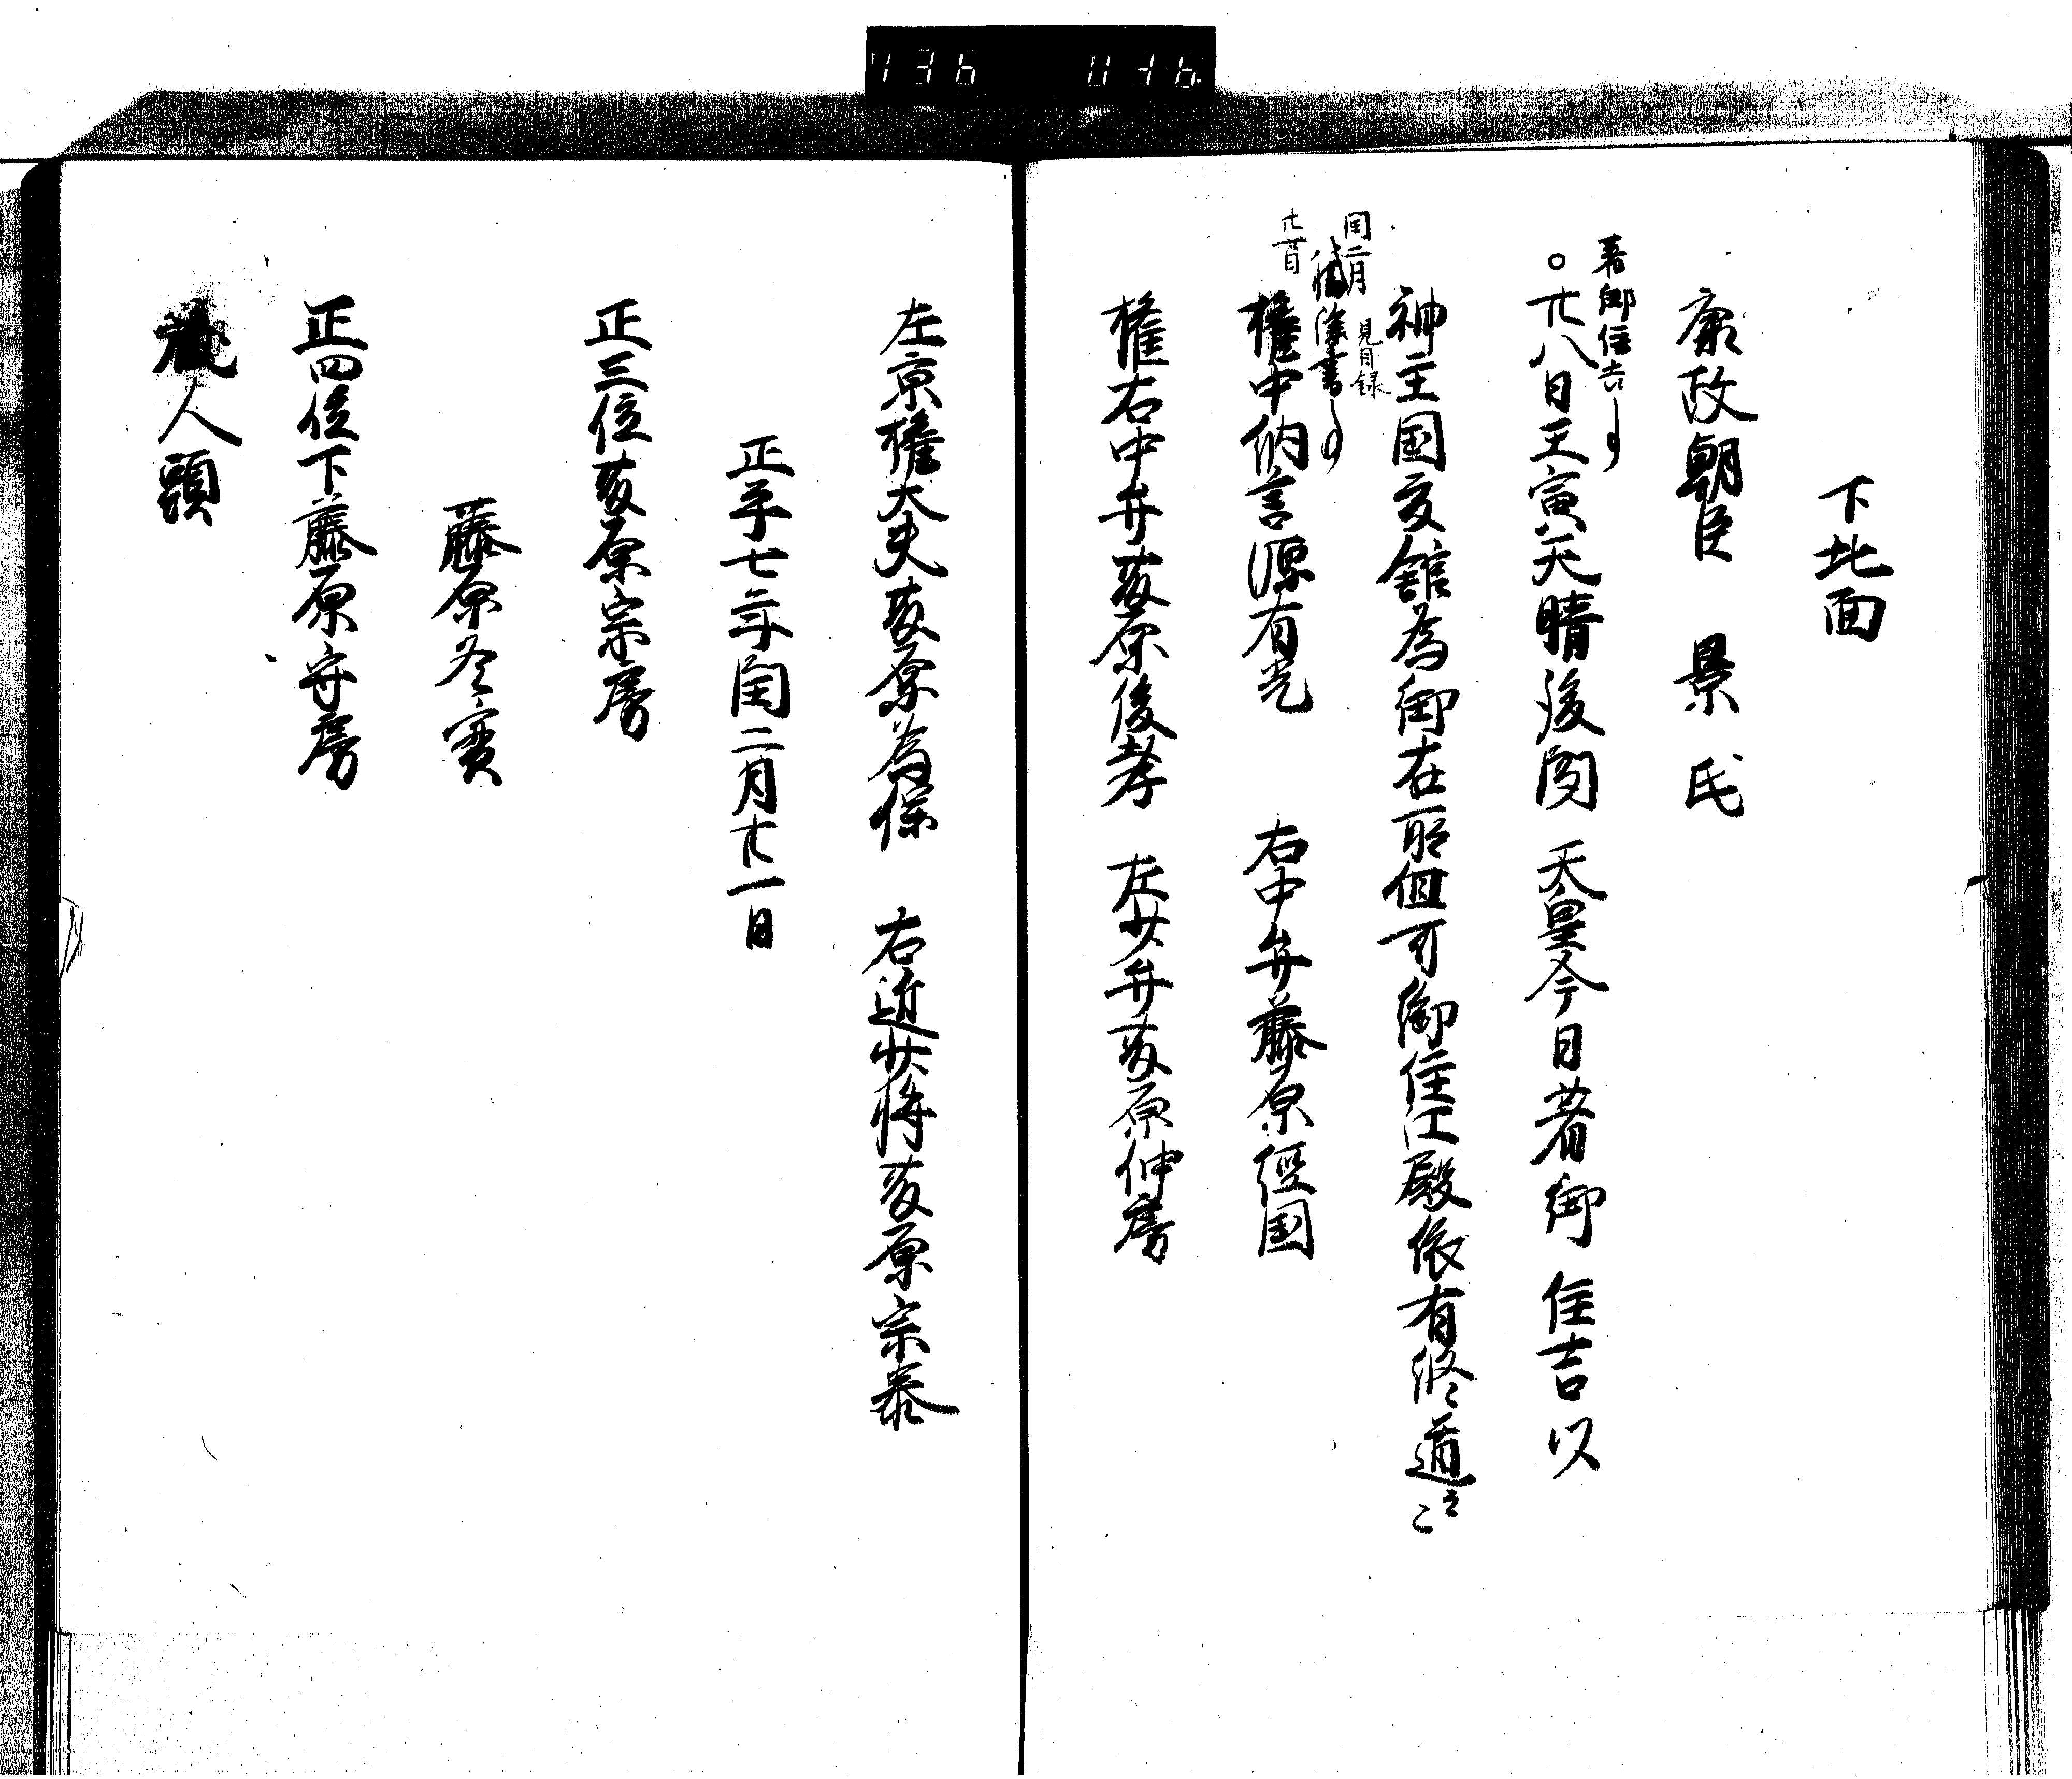 下北面
康政朝臣 景氏
著御住吉事
○廿八日壬寅天晴後聞 天皇今日著御 住吉以
神主国夏舘為御在所但可御住江殿依有修造云々
閏二月 見目録
除書事
廿一日
権中納言源有光 右中弁藤原経国
権右中弁藤原俊孝 左少弁藤原仲房
左京権大夫藤原為保 右近少将藤原宗泰
正平七年閏二月廿一日
正三位藤原宗房
藤原冬実
正四位下藤原守房
蔵人頭